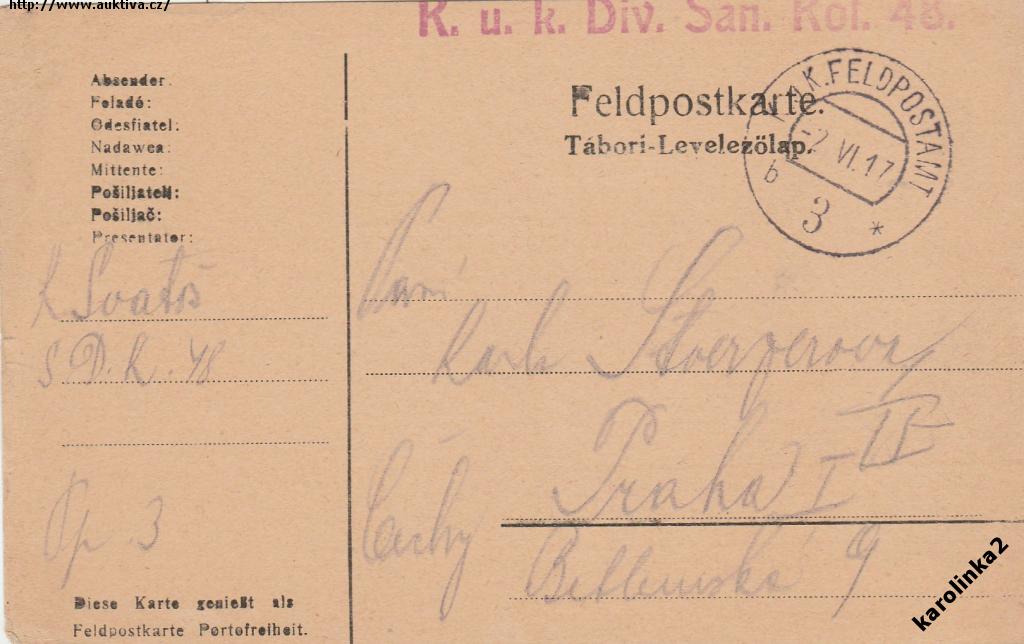 http://www.auktiva.cz/
K. u. k. Div. San. Kol. 48.
Absender:
Feladó:
Odesfiatel:
Nadawca:
Mittente:
Pošiljatelj:
Pošiljač:
Presentator:
Feldpostkarte.
Tábori-Levelezőlap.
K.FELDPOSTAMT
-2 VI.17
b 3 *
K Svatoš
S D. K. 48
Fp. 3
Paní
Praha I
Čechy
Betlemská 9
Diese Karte genießt als
Feldpostkarte Portofreiheit.
karolinka2